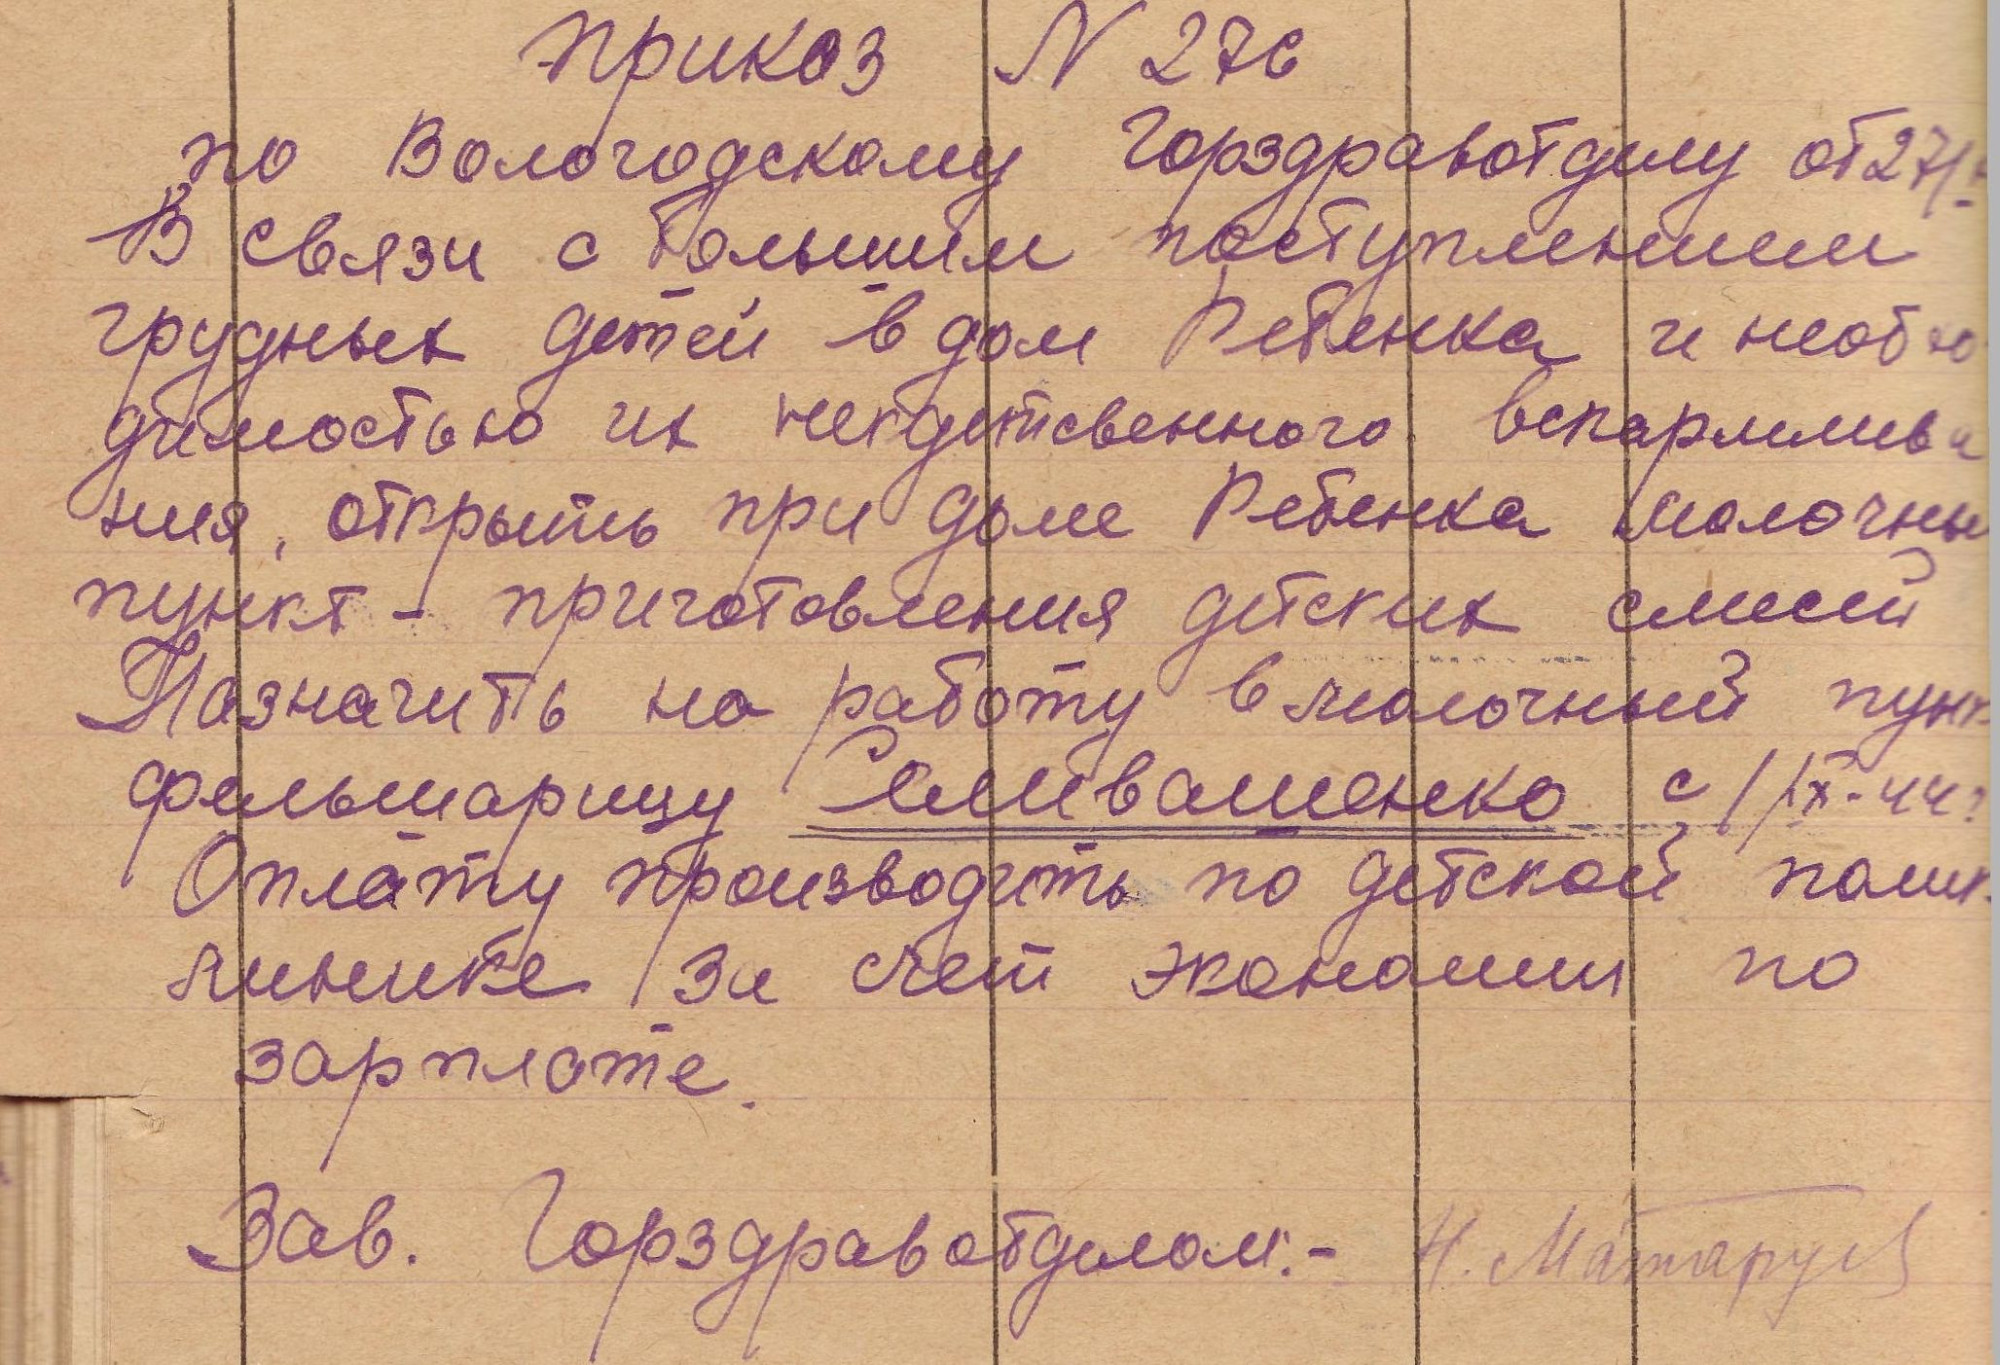 Приказ N 276
по Вологодскому Горздравотделу от 27/
В связи с большим поступлением
грудных детей в дом Ребенка и необхо
димостью их искуственного вскармлива
ния, открыть при доме Ребенка молочны
пункт - приготовления детских смесей
Назначить на работу в молочный пунк
фельшарицу Селивашенко с 1/IX-44г
Оплату производить по детской полик
линике за счет экономии по
зарплате.
Зав. Горздравотделом:-